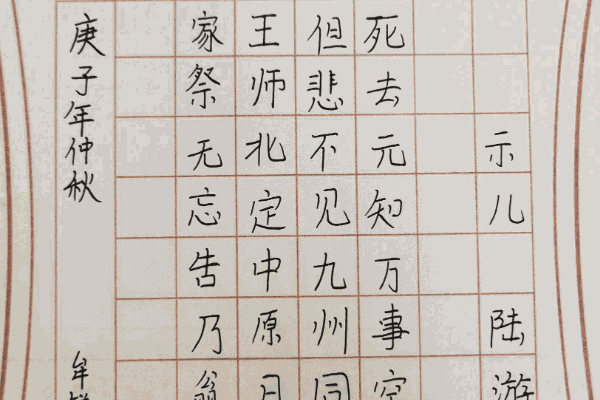 示儿 陆游
死去元知万事空
但悲不见九州同
王师北定中原日
家祭无忘告乃翁
庚子年仲秋 牟